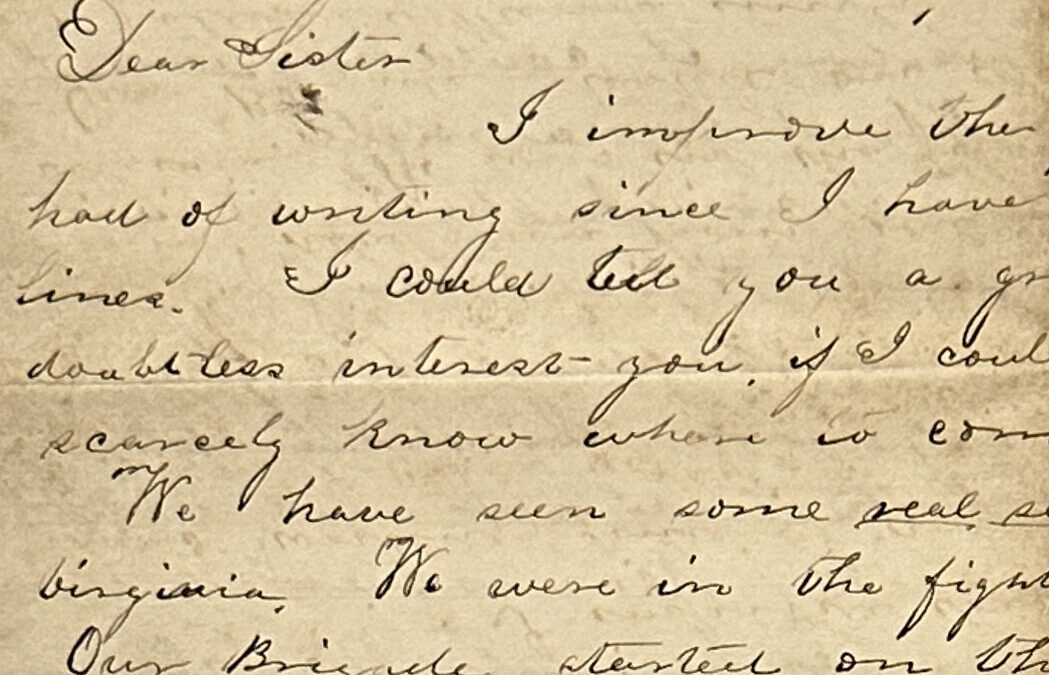 Dear Sister
I improve the
had of writing since I have
lines. I could tell you a gr
doubtless interest you, if I coul
scarcely know where to com
We have seen some real se
Virginia. We were in the fight
Our Brigade started on th